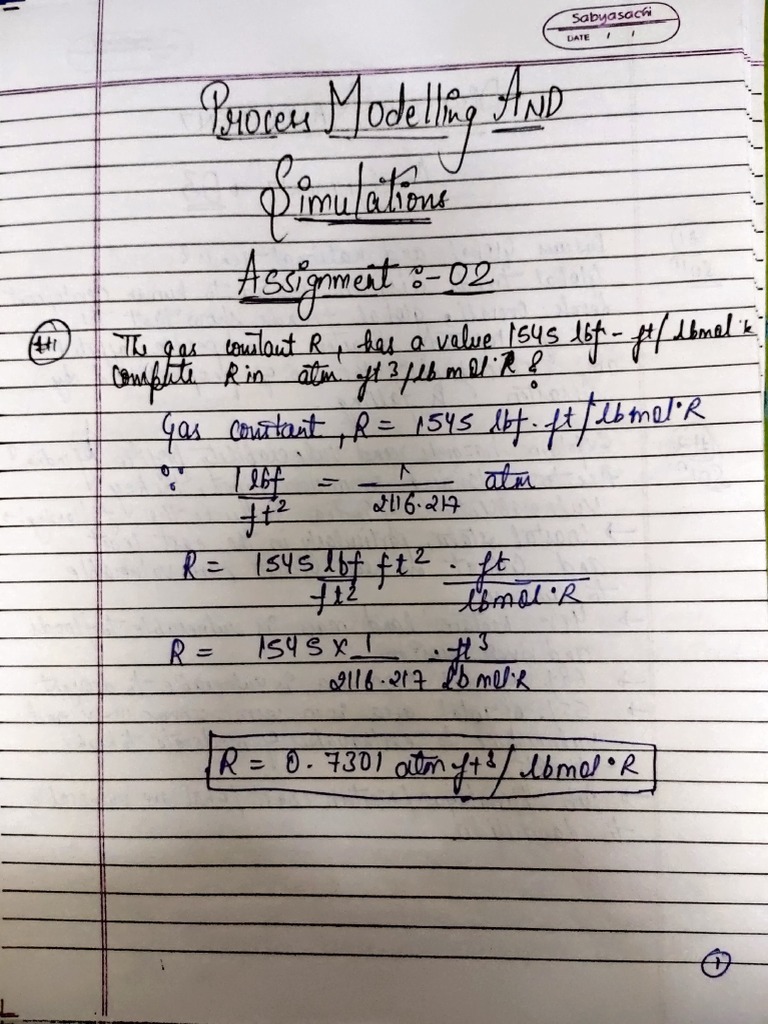 Sabyasachi
DATE / /
Process Modelling AND
Simulations
Assignment :- 02
#1 The gas constant R, has a value 1545 lbf - ft/lbmol·R
compute R in atm ft3/lb mol·R ?
Gas constant, R = 1545 lbf. ft/lbmol°R
∵ 1 lbf/ft² = 1/2116.217 atm
R = 1545 lbf/ft² ft² . ft/lbmol°R
R = 1545 x 1/2116.217 . ft³/lb mol·R
R = 0.7301 atm ft³/lbmol°R
1